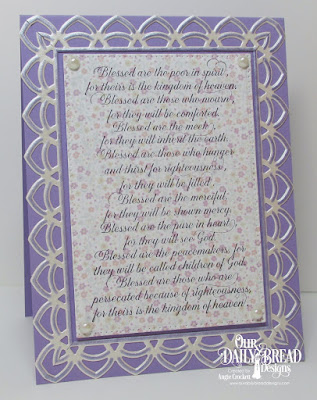 Blessed are the poor in spirit,
for theirs is the kingdom of heaven.
Blessed are those who mourn,
for they will be comforted.
Blessed are the meek,
for they will inherit the earth.
Blessed are those who hunger
and thirst for righteousness,
for they will be filled.
Blessed are the merciful
for they will be shown mercy.
Blessed are the pure in heart,
for they will see God.
Blessed are the peacemakers, for
they will be called children of God.
Blessed are those who are
persecuted because of righteousness,
for theirs is the kingdom of heaven
Our
Daily Bread
Designs
Angie Crockett